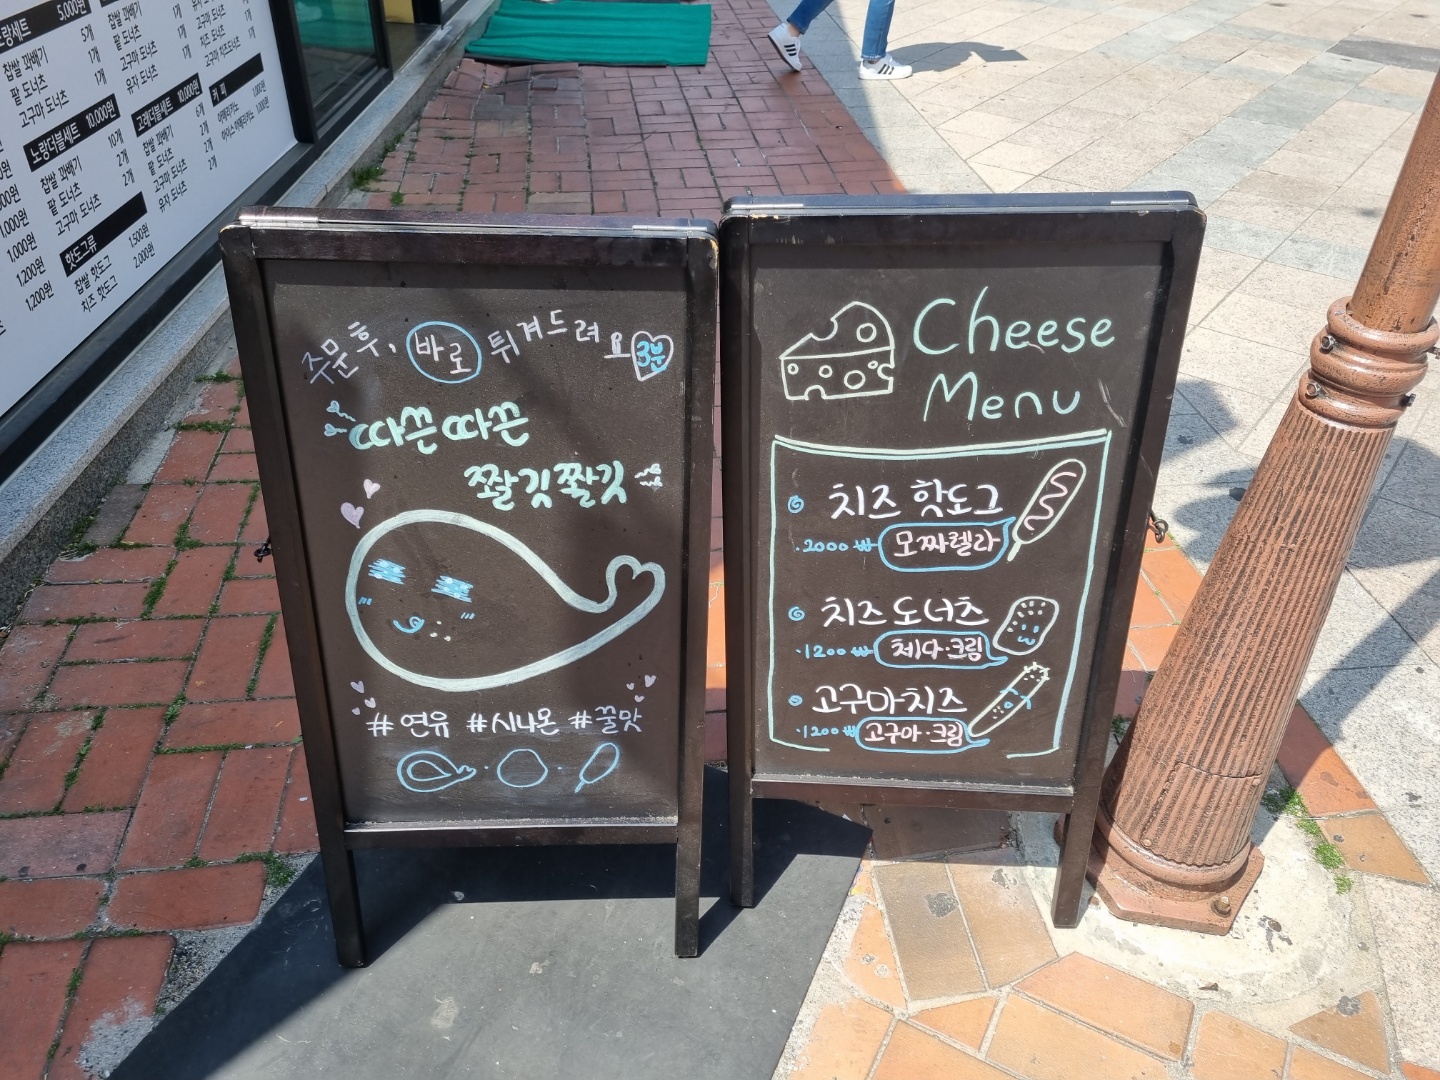 노랑세트 5,000원
찹쌀 꽈배기 5개
팥 도너츠 1개
고구마 도너츠 1개
찹쌀 꽈배기
팥 도너츠 1개
고구마 도너츠 1개
유자 도너츠 1개
고구마 도너츠
치즈 도너츠 1개
고구마 치즈도너츠 1개
노랑더블세트 10,000원
찹쌀 꽈배기 10개
팥 도너츠 2개
고구마 도너츠 2개
고래더블세트 10,000원
찹쌀 꽈배기 6개
팥 도너츠 2개
고구마 도너츠 2개
유자 도너츠 2개
커피
아메리카노 1,000원
아이스 아메리카노 1,000원
1,000원
1,000원
1,200원
1,200원
핫도그류
찹쌀 핫도그 1,500원
치즈 핫도그 2,000원
주문 후, 바로 튀겨드려요 3분
따끈따끈
쫠깃쫠깃
#연유 #시나몬 #꿀맛
Cheese
Menu
치즈 핫도그
·2000₩ 모짜렐라
치즈 도너츠
·1200₩ 체다·크림
고구마치즈
·1200₩ 고구마·크림